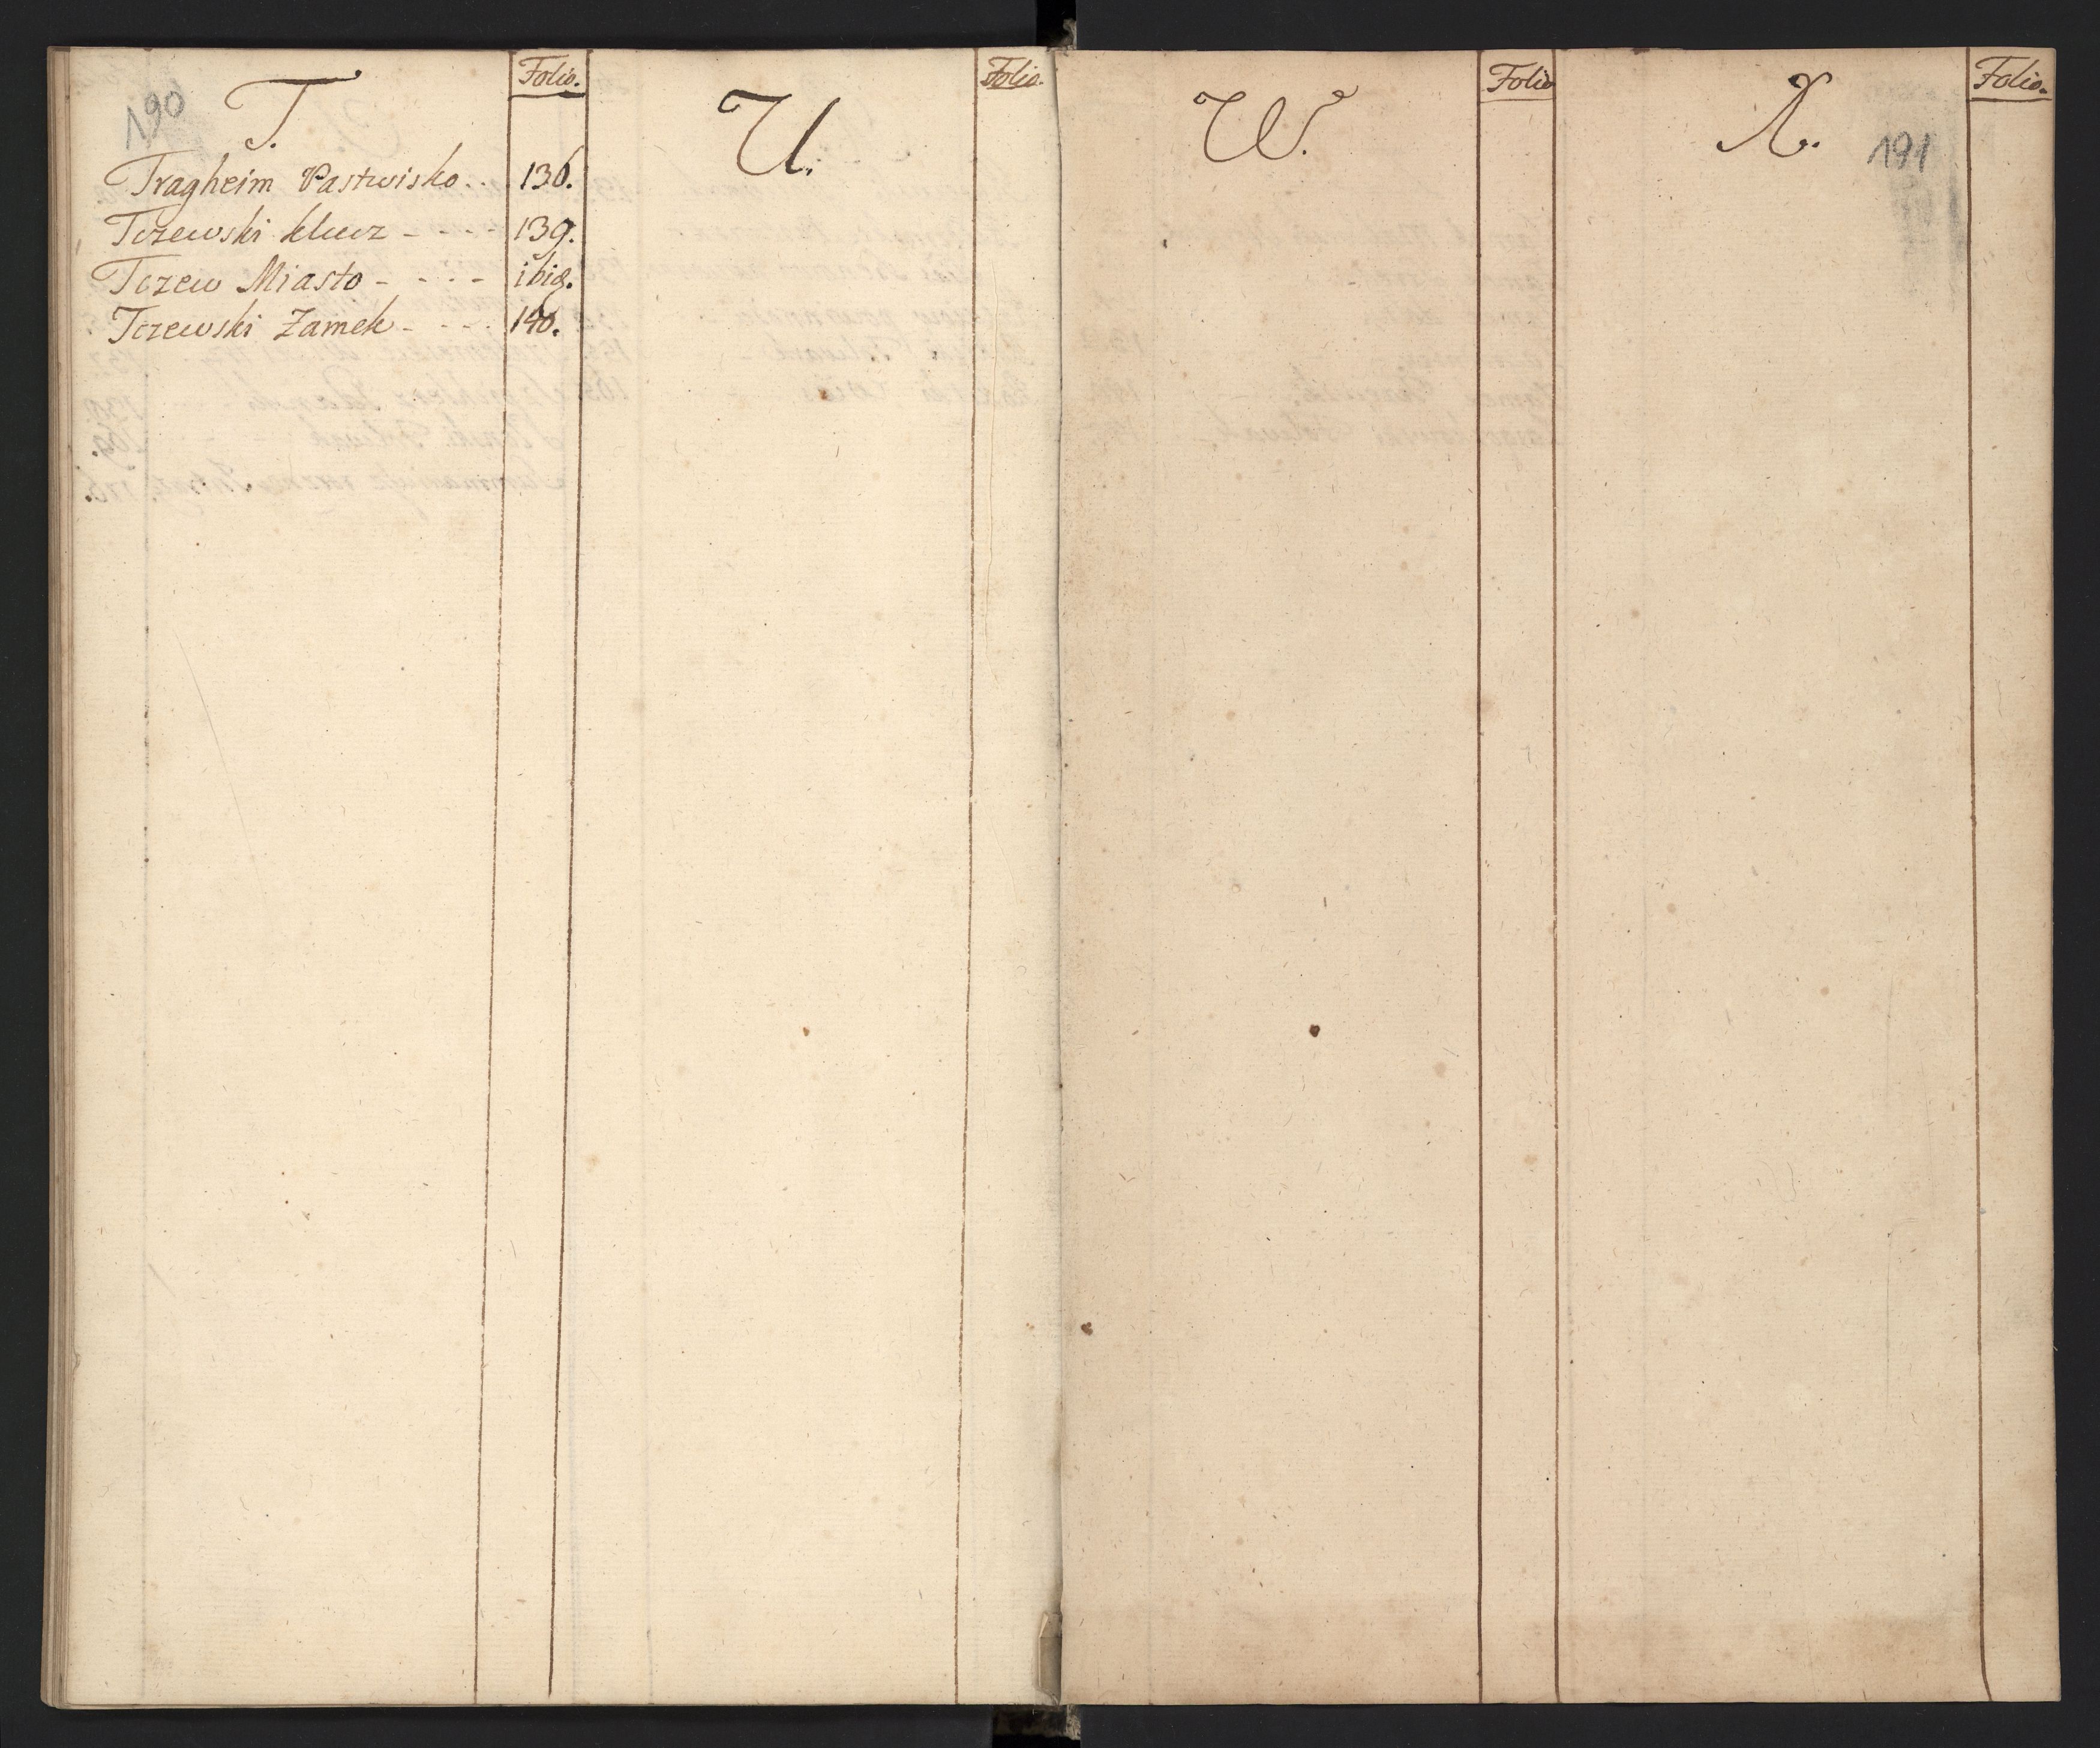 190
T.
Folio.
Tragheim Pastwisko . . 136.
Tczewski klucz - - - - 139.
Tczew Miasto - - - - ibid.
Tczewski Zamek - - - . 140.
U.
Folio.
W.
Folio
X.
191
Folio.